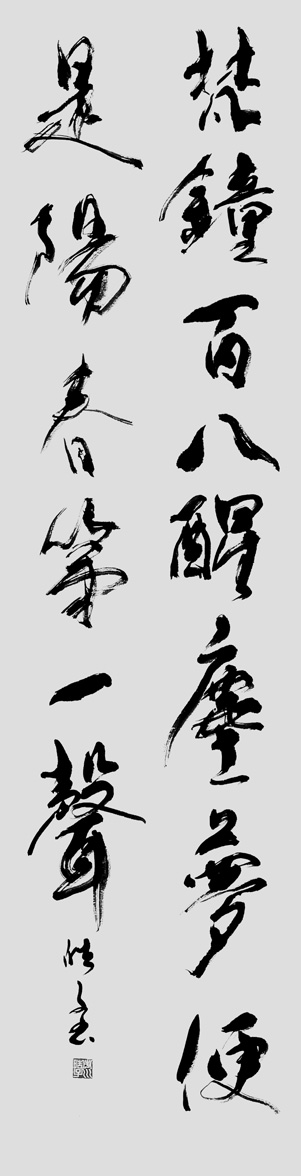 梵鐘百八醒塵夢便
是陽春第一聲